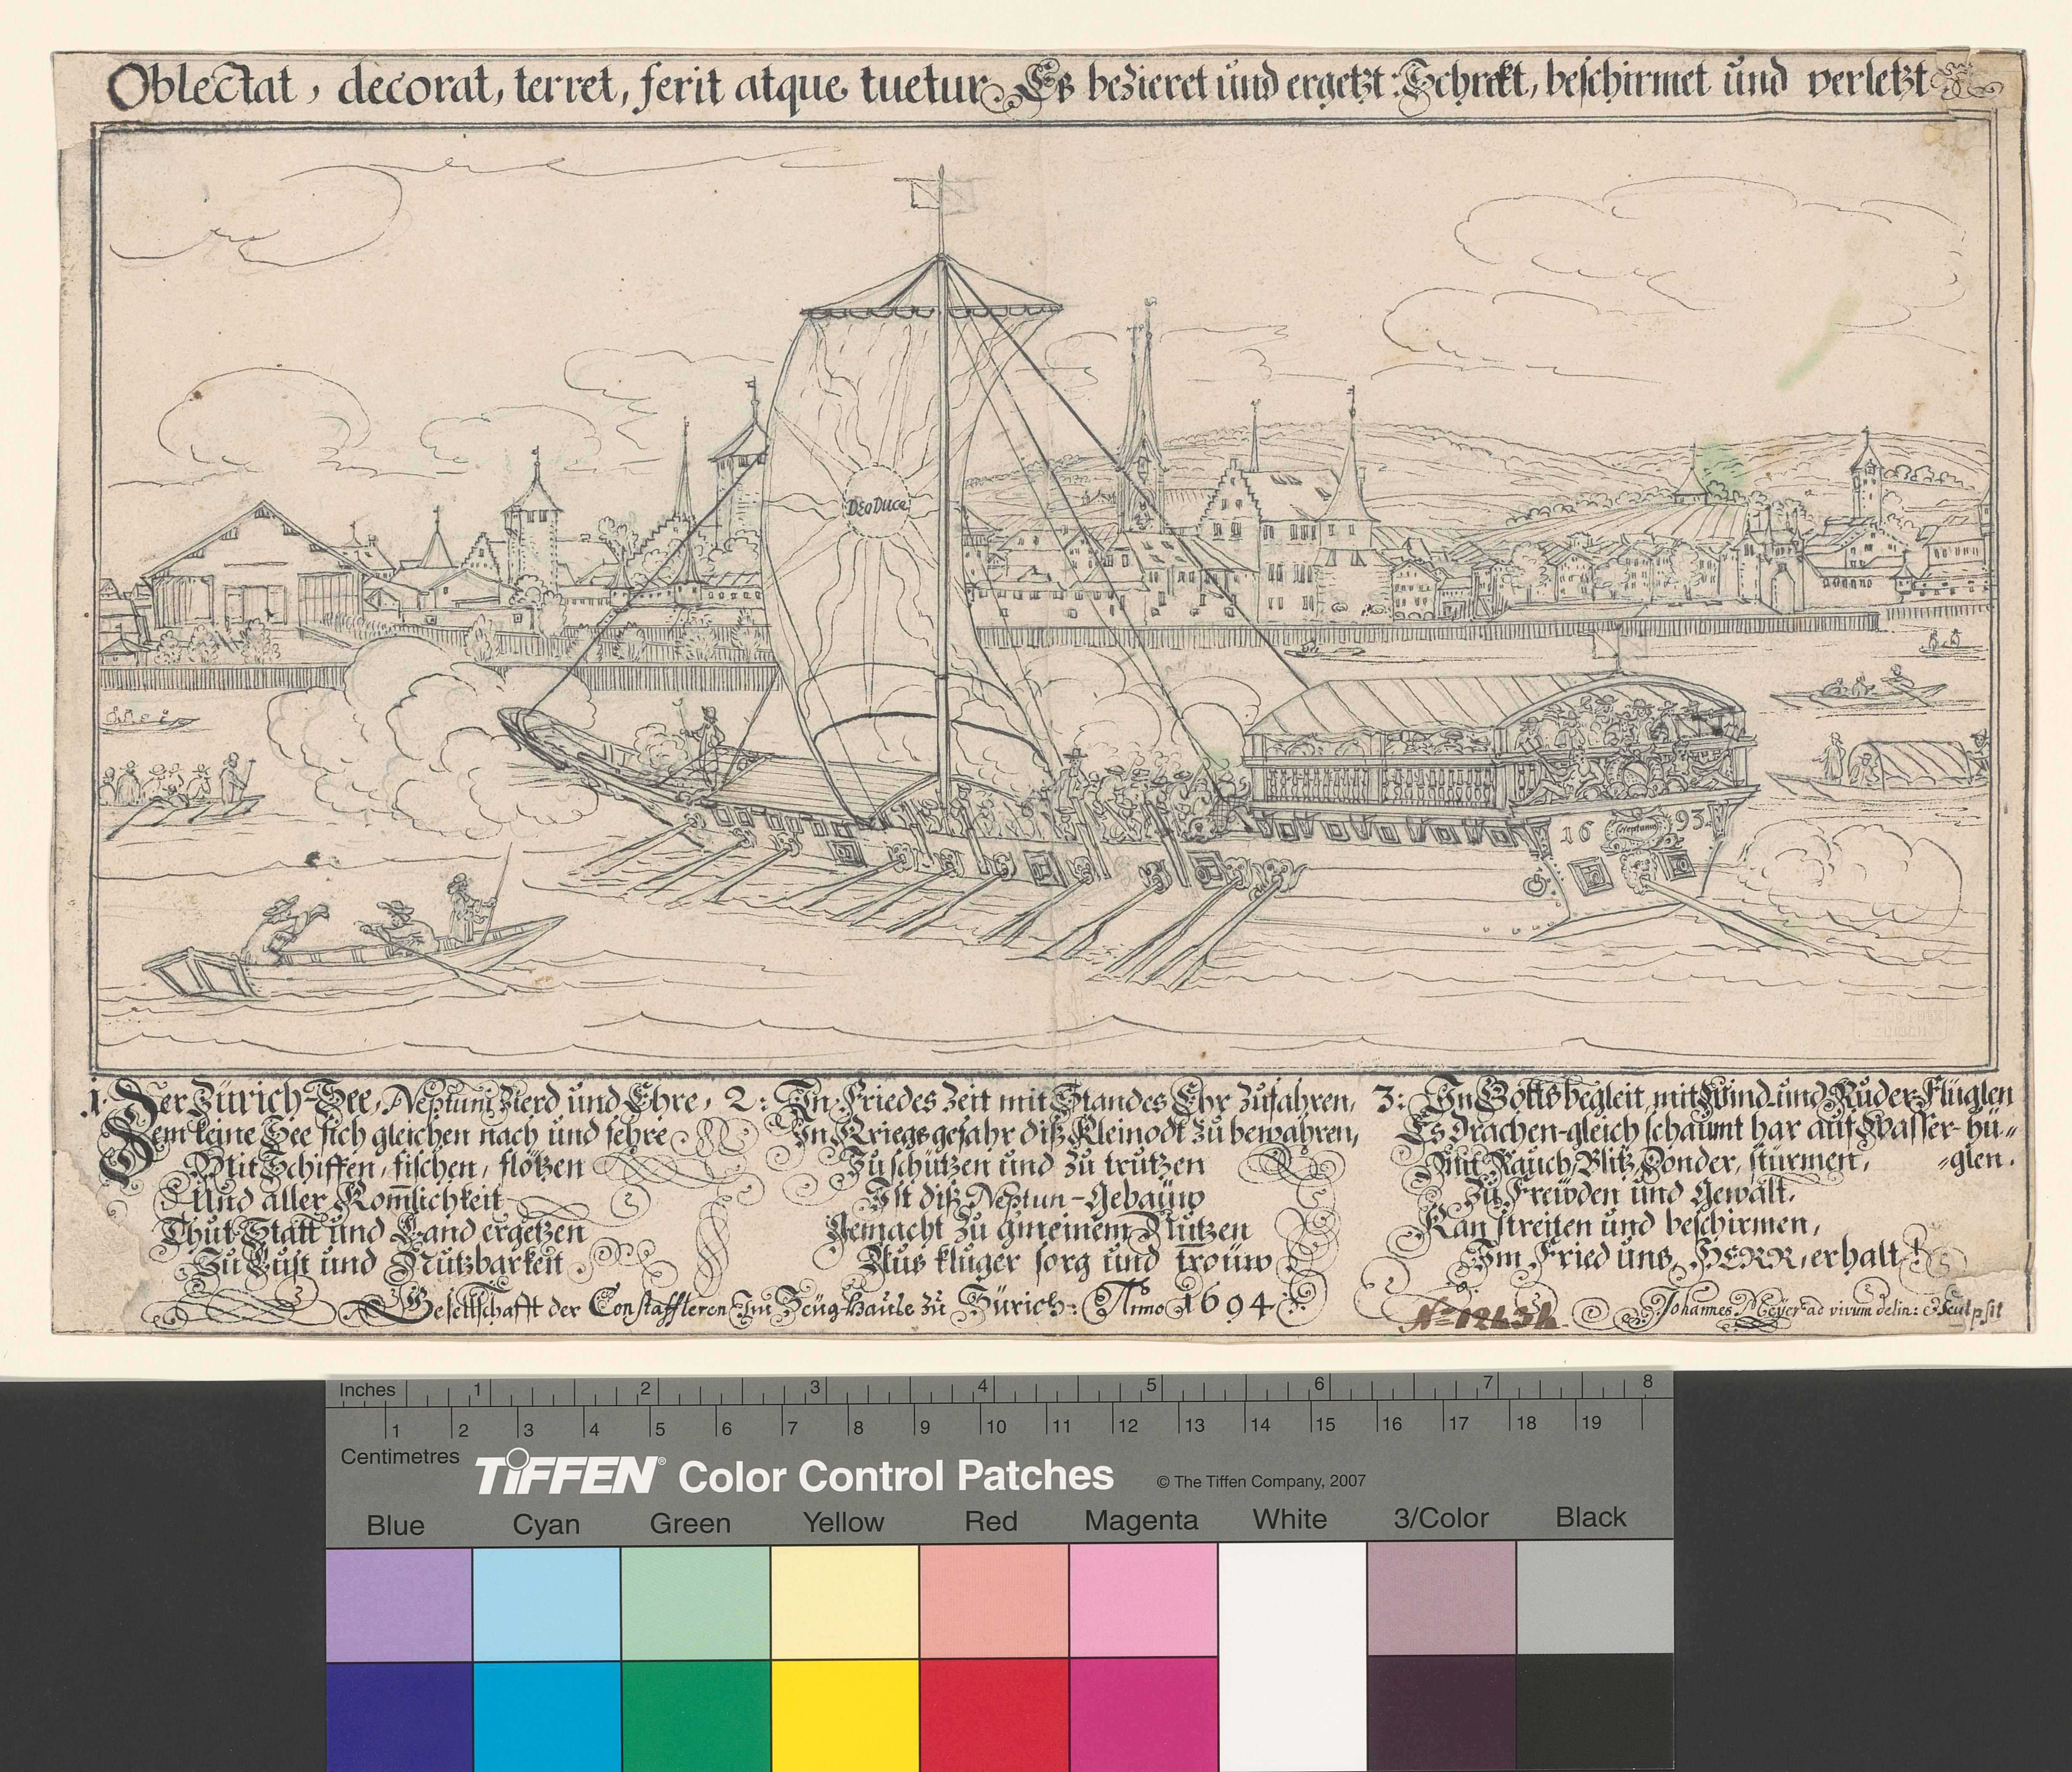 Oblectat, decorat, terret, ferit atque tuetur Es bezieret und ergetzt: Schrekt, beschirmet und verletzt
DEO DUCE
16 Neptunus 93
1. Der Zürich-See, Neptuni Zierd und Ehre,
Dem keine See sich gleichen nach und fehre
Mit Schiffen, fischen, flötzen
Und aller Kom̃lichkeit
Thut Statt und Land ergetzen
Zu Lust und Nutzbarkeit
2: In Friedes Zeit mit Standes Ehr zufahren,
In Kriegs gefahr diß Kleinodt zu bewahren,
Zu schützen und zu trutzen
Ist diß Neptun-Gebäüw
Gemacht zu gmeinem Nutzen
Aus kluger sorg und trouw
3: In Gotts begleit mit Wind und Ruder-Flüglen
Es drachen-gleich schaumt har auf Wasser-hü=
=glen.
Mit Rauch, Blitz, Donder, stürmen,
Zu Frewden und Gewalt.
Kan streiten und beschirmen,
Im Fried uns, HERR, erhalt!
Gesellschafft der Constaffleren Im Zeüg-hause zu Zürich: Anno 1694
Johannes Meyer ad vivum delin: & Sculpsit
Inches 1 2 3 4 5 6 7 8
1 2 3 4 5 6 7 8 9 10 11 12 13 14 15 16 17 18 19
Centimetres
TIFFEN® Color Control Patches © The Tiffen Company, 2007
Blue Cyan Green Yellow Red Magenta White 3/Color Black